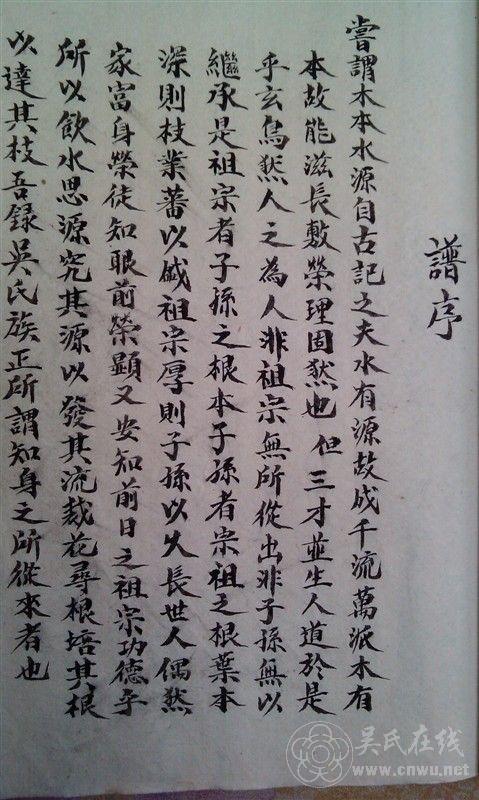 譜序
嘗謂木本水源自古記之夫水有源故成千流萬派木有
本故能滋長敷榮理固然也但三才並生人道於是
乎玄鳥然人之為人非祖宗無所從出非子孫無以
繼承是祖宗者子孫之根本子孫者宗祖之根葉本
深則枝業蕃以盛祖宗厚則子孫以久長世人偶然
家富身榮徒知眼前榮顯又安知前日之祖宗功德乎
所以飲水思源究其源以發其流栽花尋根培其根
以達其枝吾録吳氏族正所謂知身之所從來者也
吴氏在线
www.cnwu.net